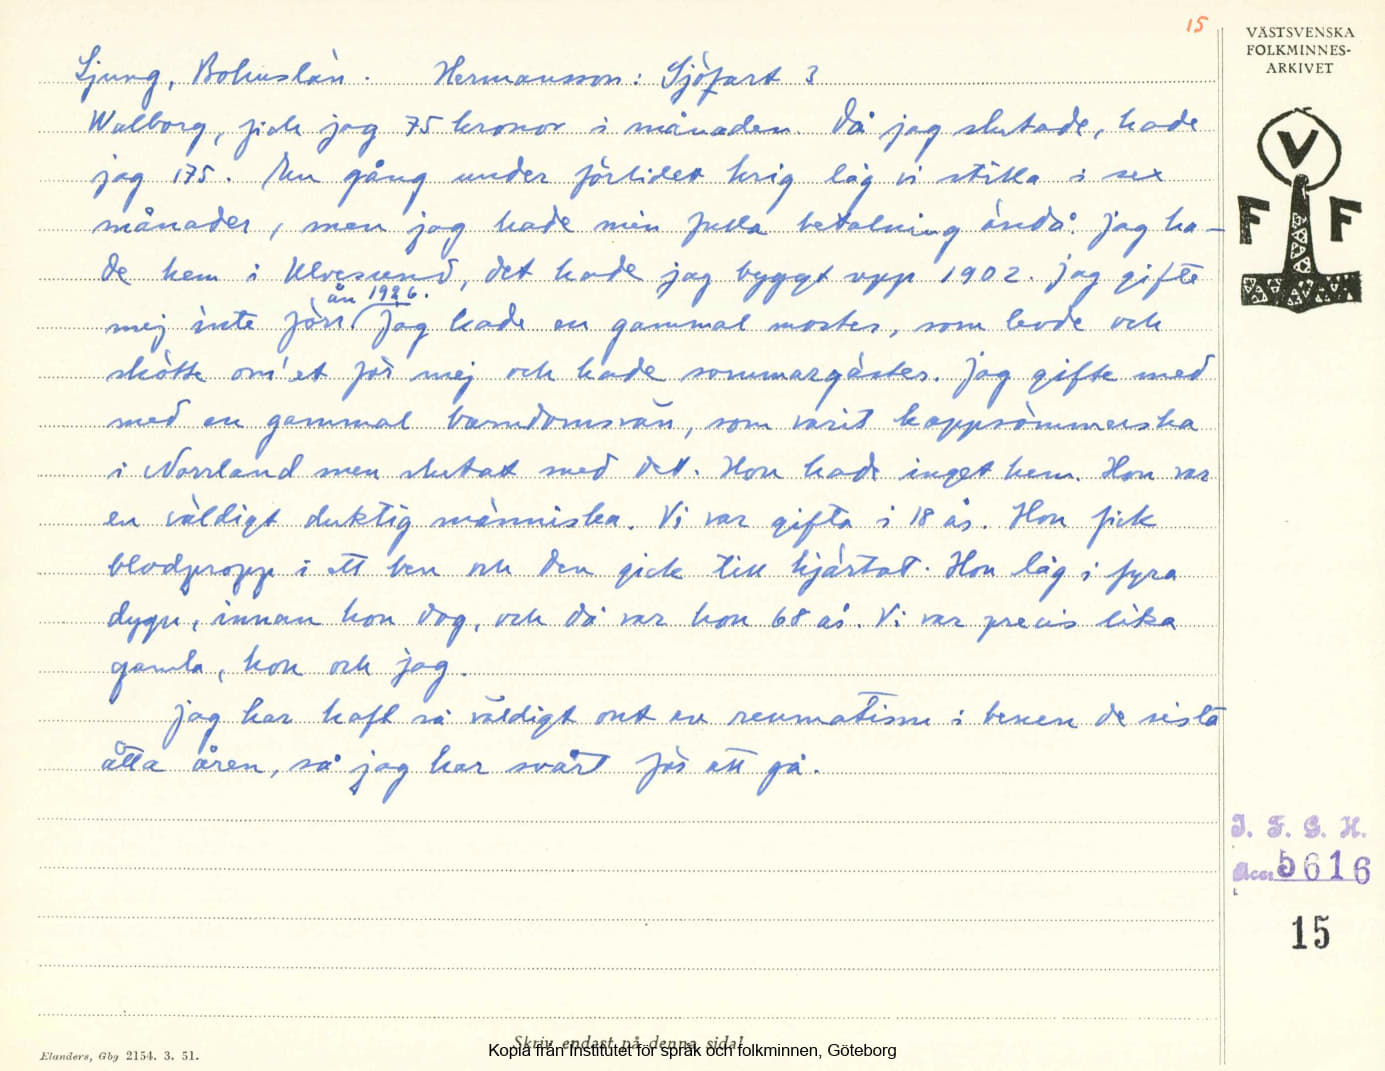 15
VÄSTSVENSKA
FOLKMINNES-
ARKIVET
Ljung, Bohuslän. Hermansson: Sjöfart 3
Walborg, fick jag 75 kronor i månaden. Då jag slutade, hade
jag 175. En gång under förlidet krig låg vi stilla i sex
månader, men jag hade min fulla betalning ändå. Jag ha-
de hem i Ulvesund, det hade jag byggt upp 1902. Jag gifte
mej inte förr än 1926. Jag hade en gammal moster, som levde och
skötte om'et för mej och hade sommargäster. Jag gifte med
med en gammal barndomsvän, som varit kappsömmerska
i Norrland men slutat med det. Hon hade inget hem. Hon var
en väldigt duktig människa. Vi var gifta i 18 år. Hon fick
blodpropp i ett ben och den gick till hjärtat. Hon låg i fyra
dygn, innan hon dog, och då var hon 68 år. Vi var precis lika
gamla, hon och jag.
Jag har haft så väldigt ont av reumatism i benen de sista
åtta åren, så jag har svårt för att gå.
V
F F
I. F. G. H.
Acc. 5616
15
Elanders, Gbg 2154. 3. 51.
Skriv endast på denna sida!
Kopia från Institutet för språk och folkminnen, Göteborg